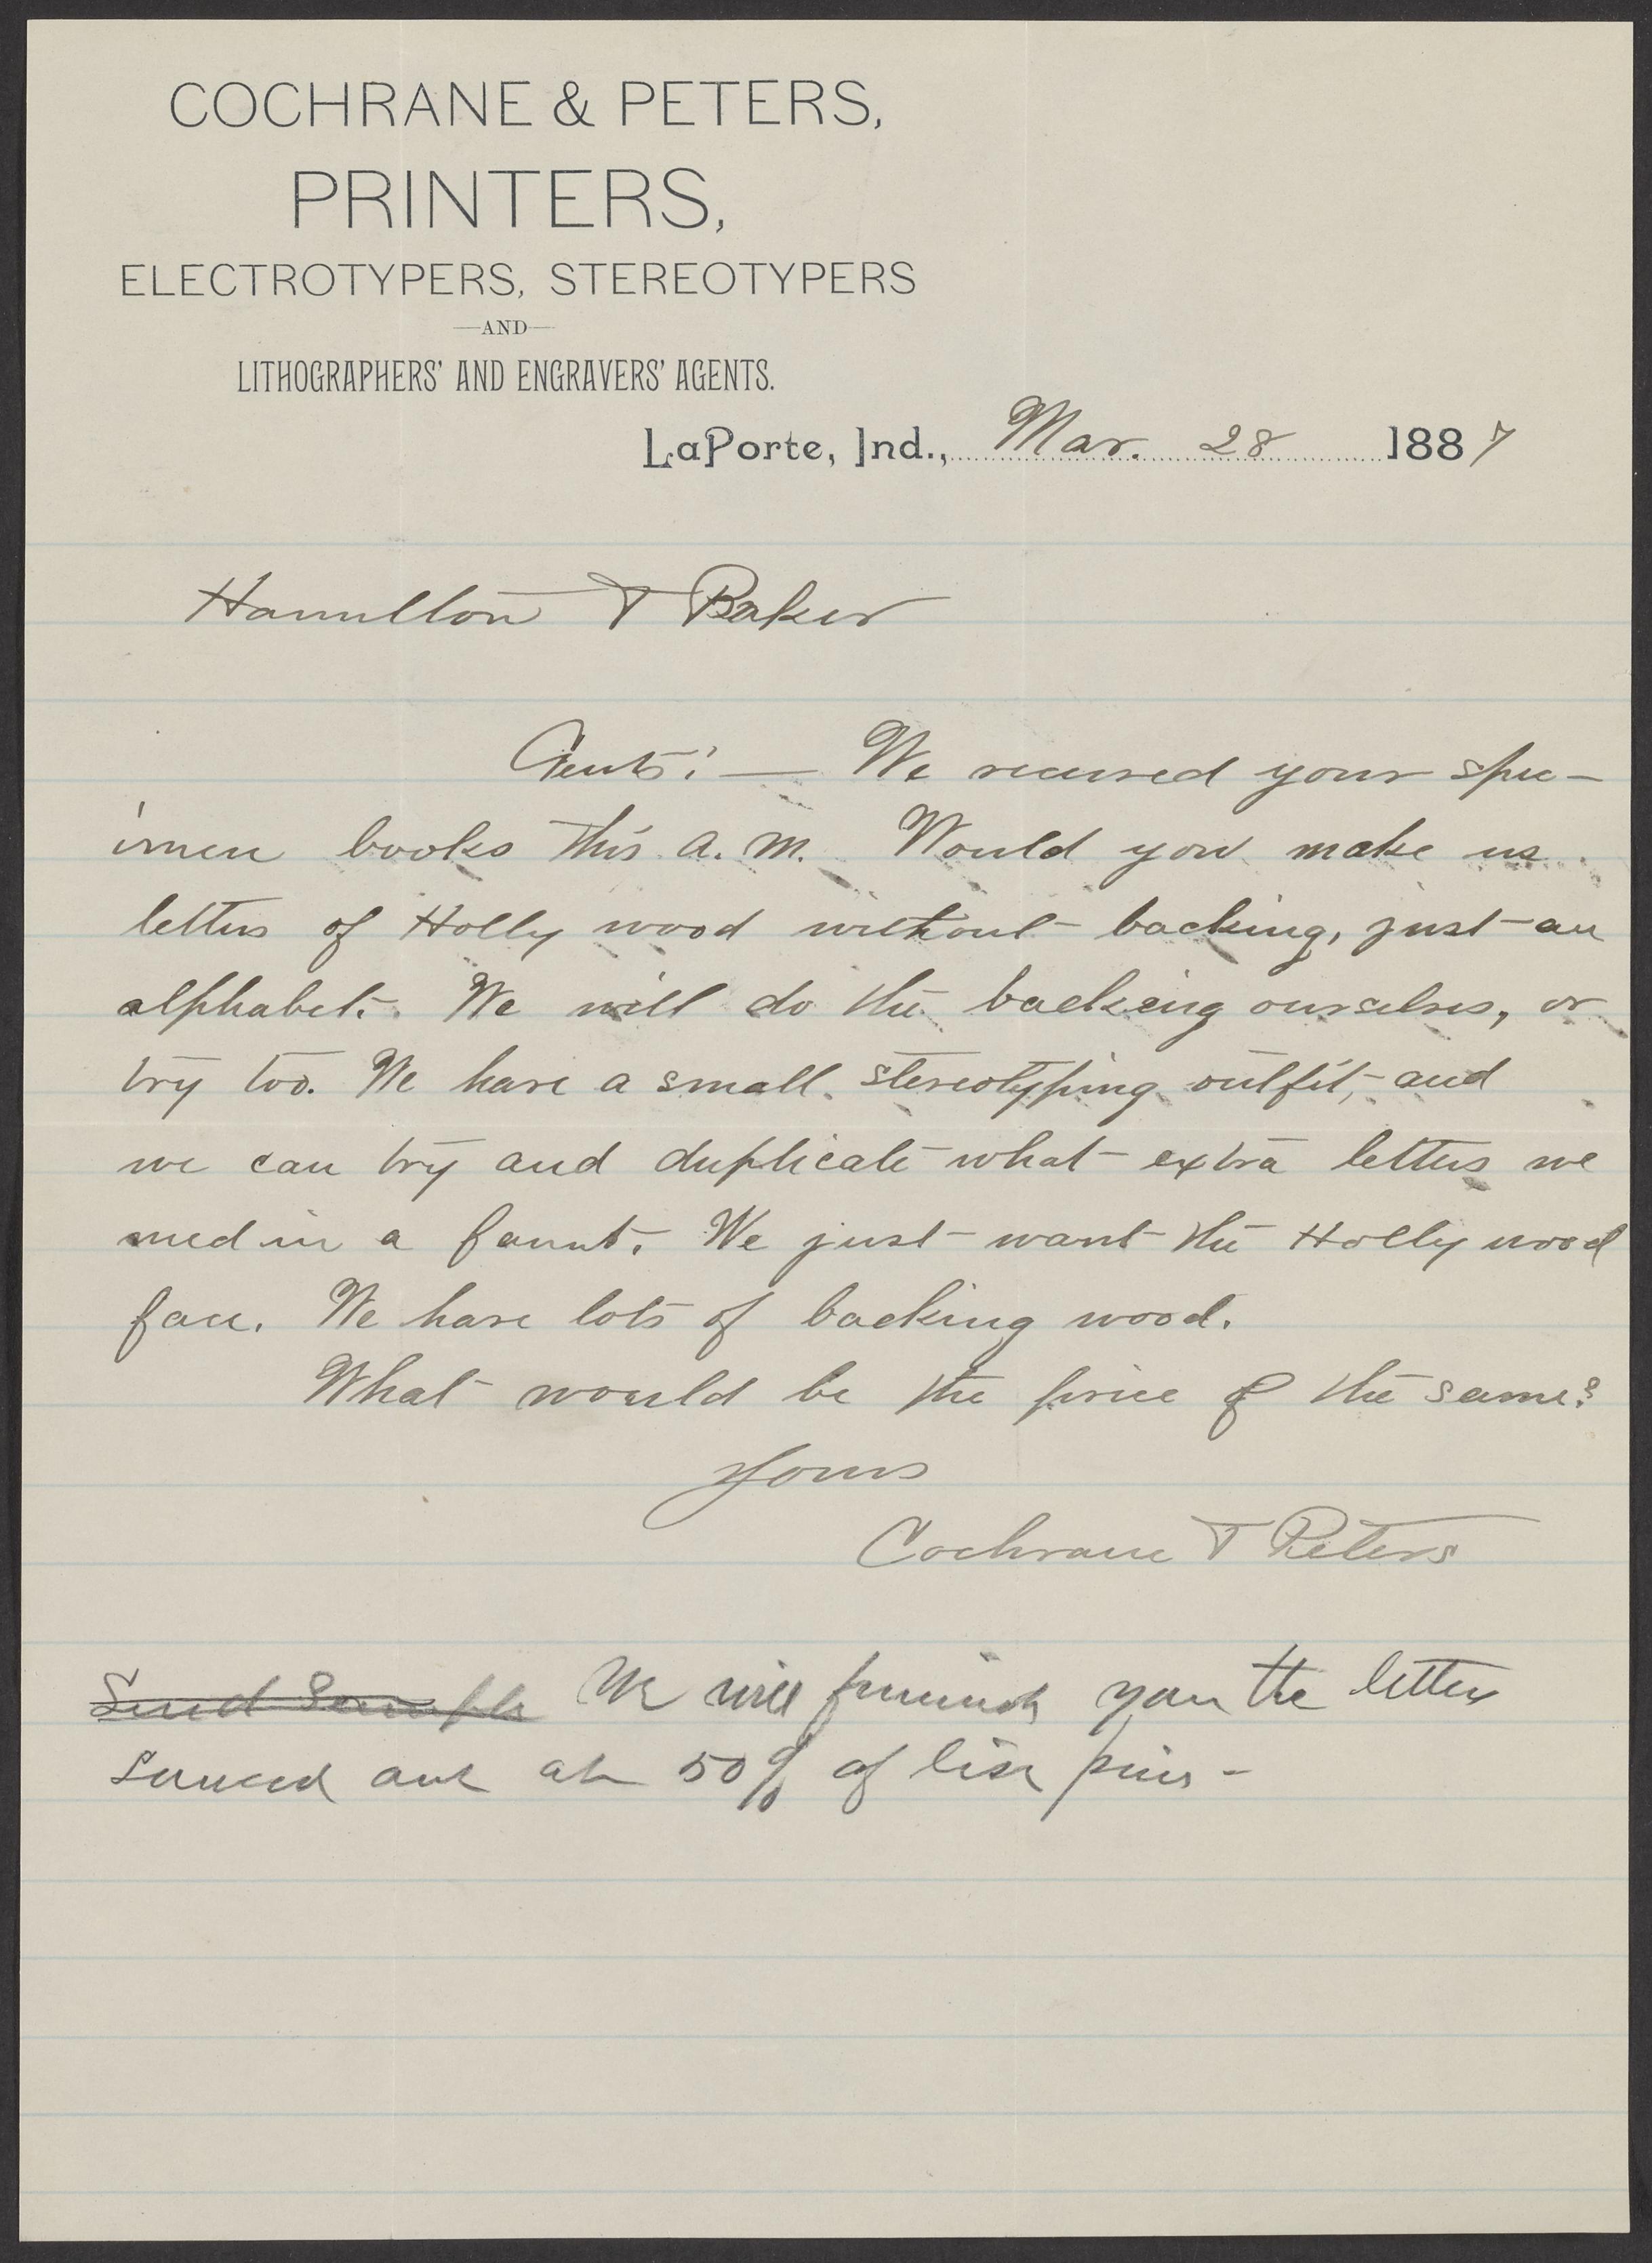 COCHRANE & PETERS,
PRINTERS,
ELECTROTYPERS, STEREOTYPERS
—AND—
LITHOGRAPHERS' AND ENGRAVERS' AGENTS.
LaPorte, Ind., Mar. 28 1887
Hamilton & Baker
Gents: — We received your spec-
imen books this a.m. Would you make us
letters of Holly wood without backing, just an
alphabet. We will do the backing ourselves, or
try too. We have a small stereotyping outfit, and
we can try and duplicate what extra letters we
need in a faunt. We just want the Holly wood
face. We have lots of backing wood.
What would be the price of the same?
Yours
Cochrane & Peters
Send Sample We will furnish you the letters
Sawed out at 50% of list price -